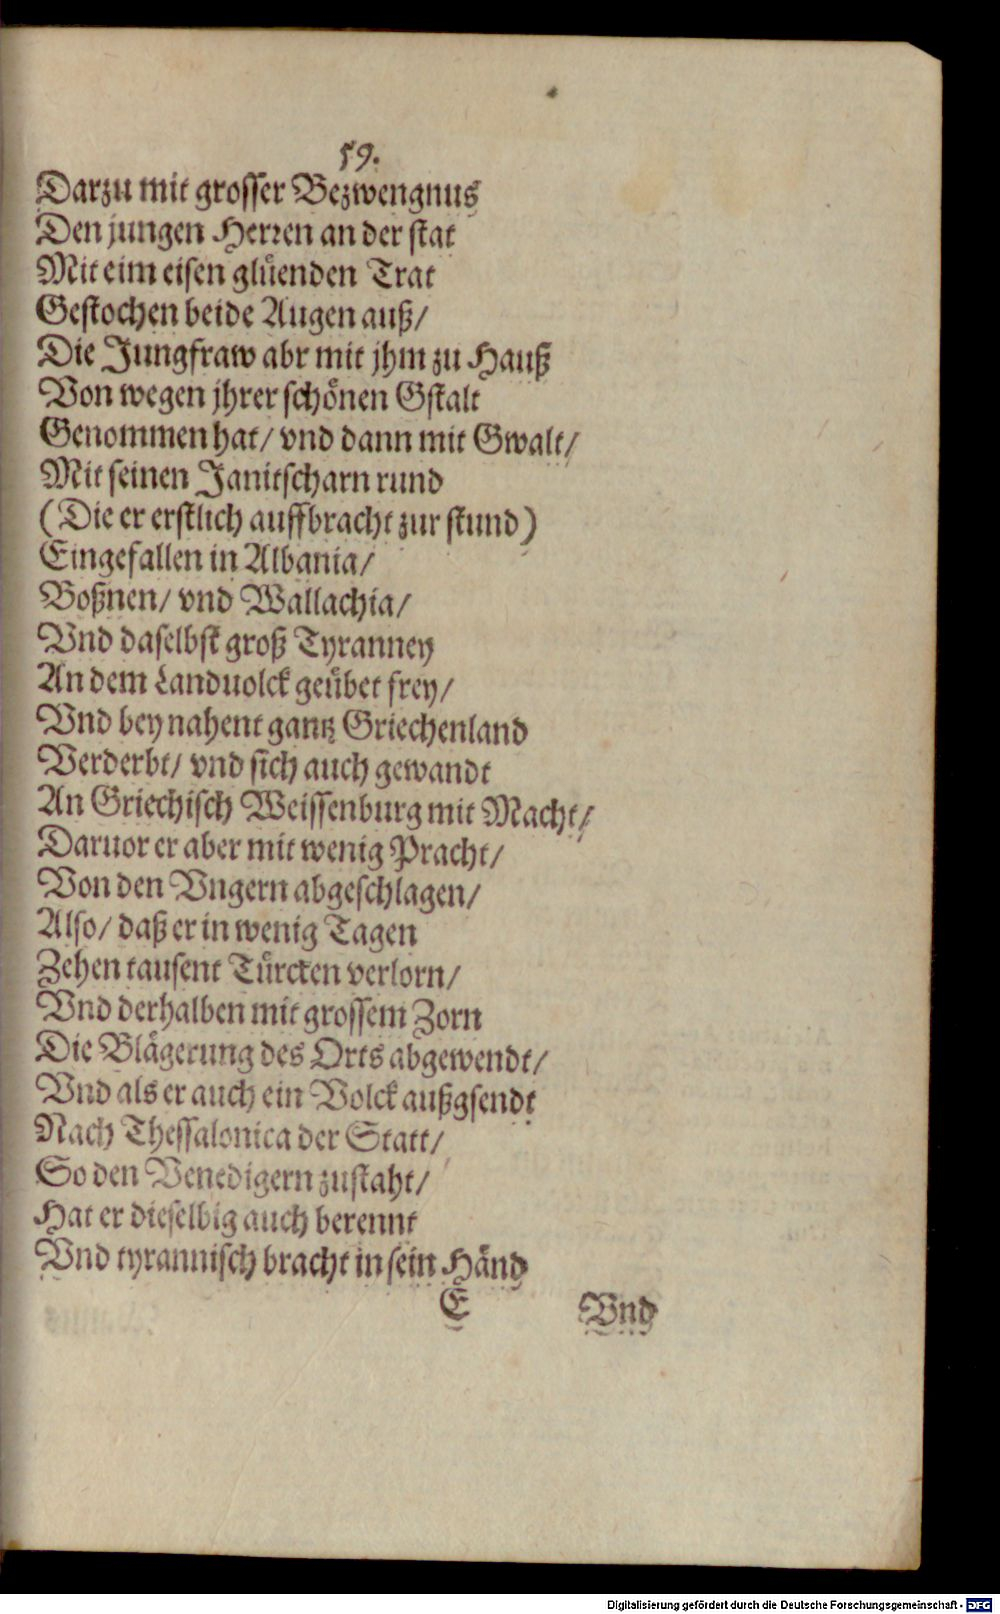 59.
Darzu mit grosser Bezwengnus
Den jungen Herren an der stat
Mit eim eisen glüenden Trat
Gestochen beide Augen auß/
Die Jungfraw abr mit jhm zu Hauß
Von wegen jhrer schönen Gstalt
Genommen hat/ vnd dann mit Gwalt/
Mit seinen Janitscharn rund
(Die er erstlich auffbracht zur stund)
Eingefallen in Albania/
Boßnen/ vnd Wallachia/
Vnd daselbst groß Tyranney
An dem Landuolck geübet frey/
Vnd bey nahent gantz Griechenland
Verderbt/ vnd sich auch gewandt
An Griechisch Weissenburg mit Macht/
Daruor er aber mit wenig Pracht/
Von den Vngern abgeschlagen/
Also/ daß er in wenig Tagen
Zehen tausent Türcken verlorn/
Vnd derhalben mit grossem Zorn
Die Blägerung des Orts abgewendt/
Vnd als er auch ein Volck außgsendt
Nach Thessalonica der Statt/
So den Venedigern zustaht/
Hat er dieselbig auch berennt
Vnd tyrannisch bracht in sein Händ
E Vnd
Digitalisierung gefördert durch die Deutsche Forschungsgemeinschaft - DFG